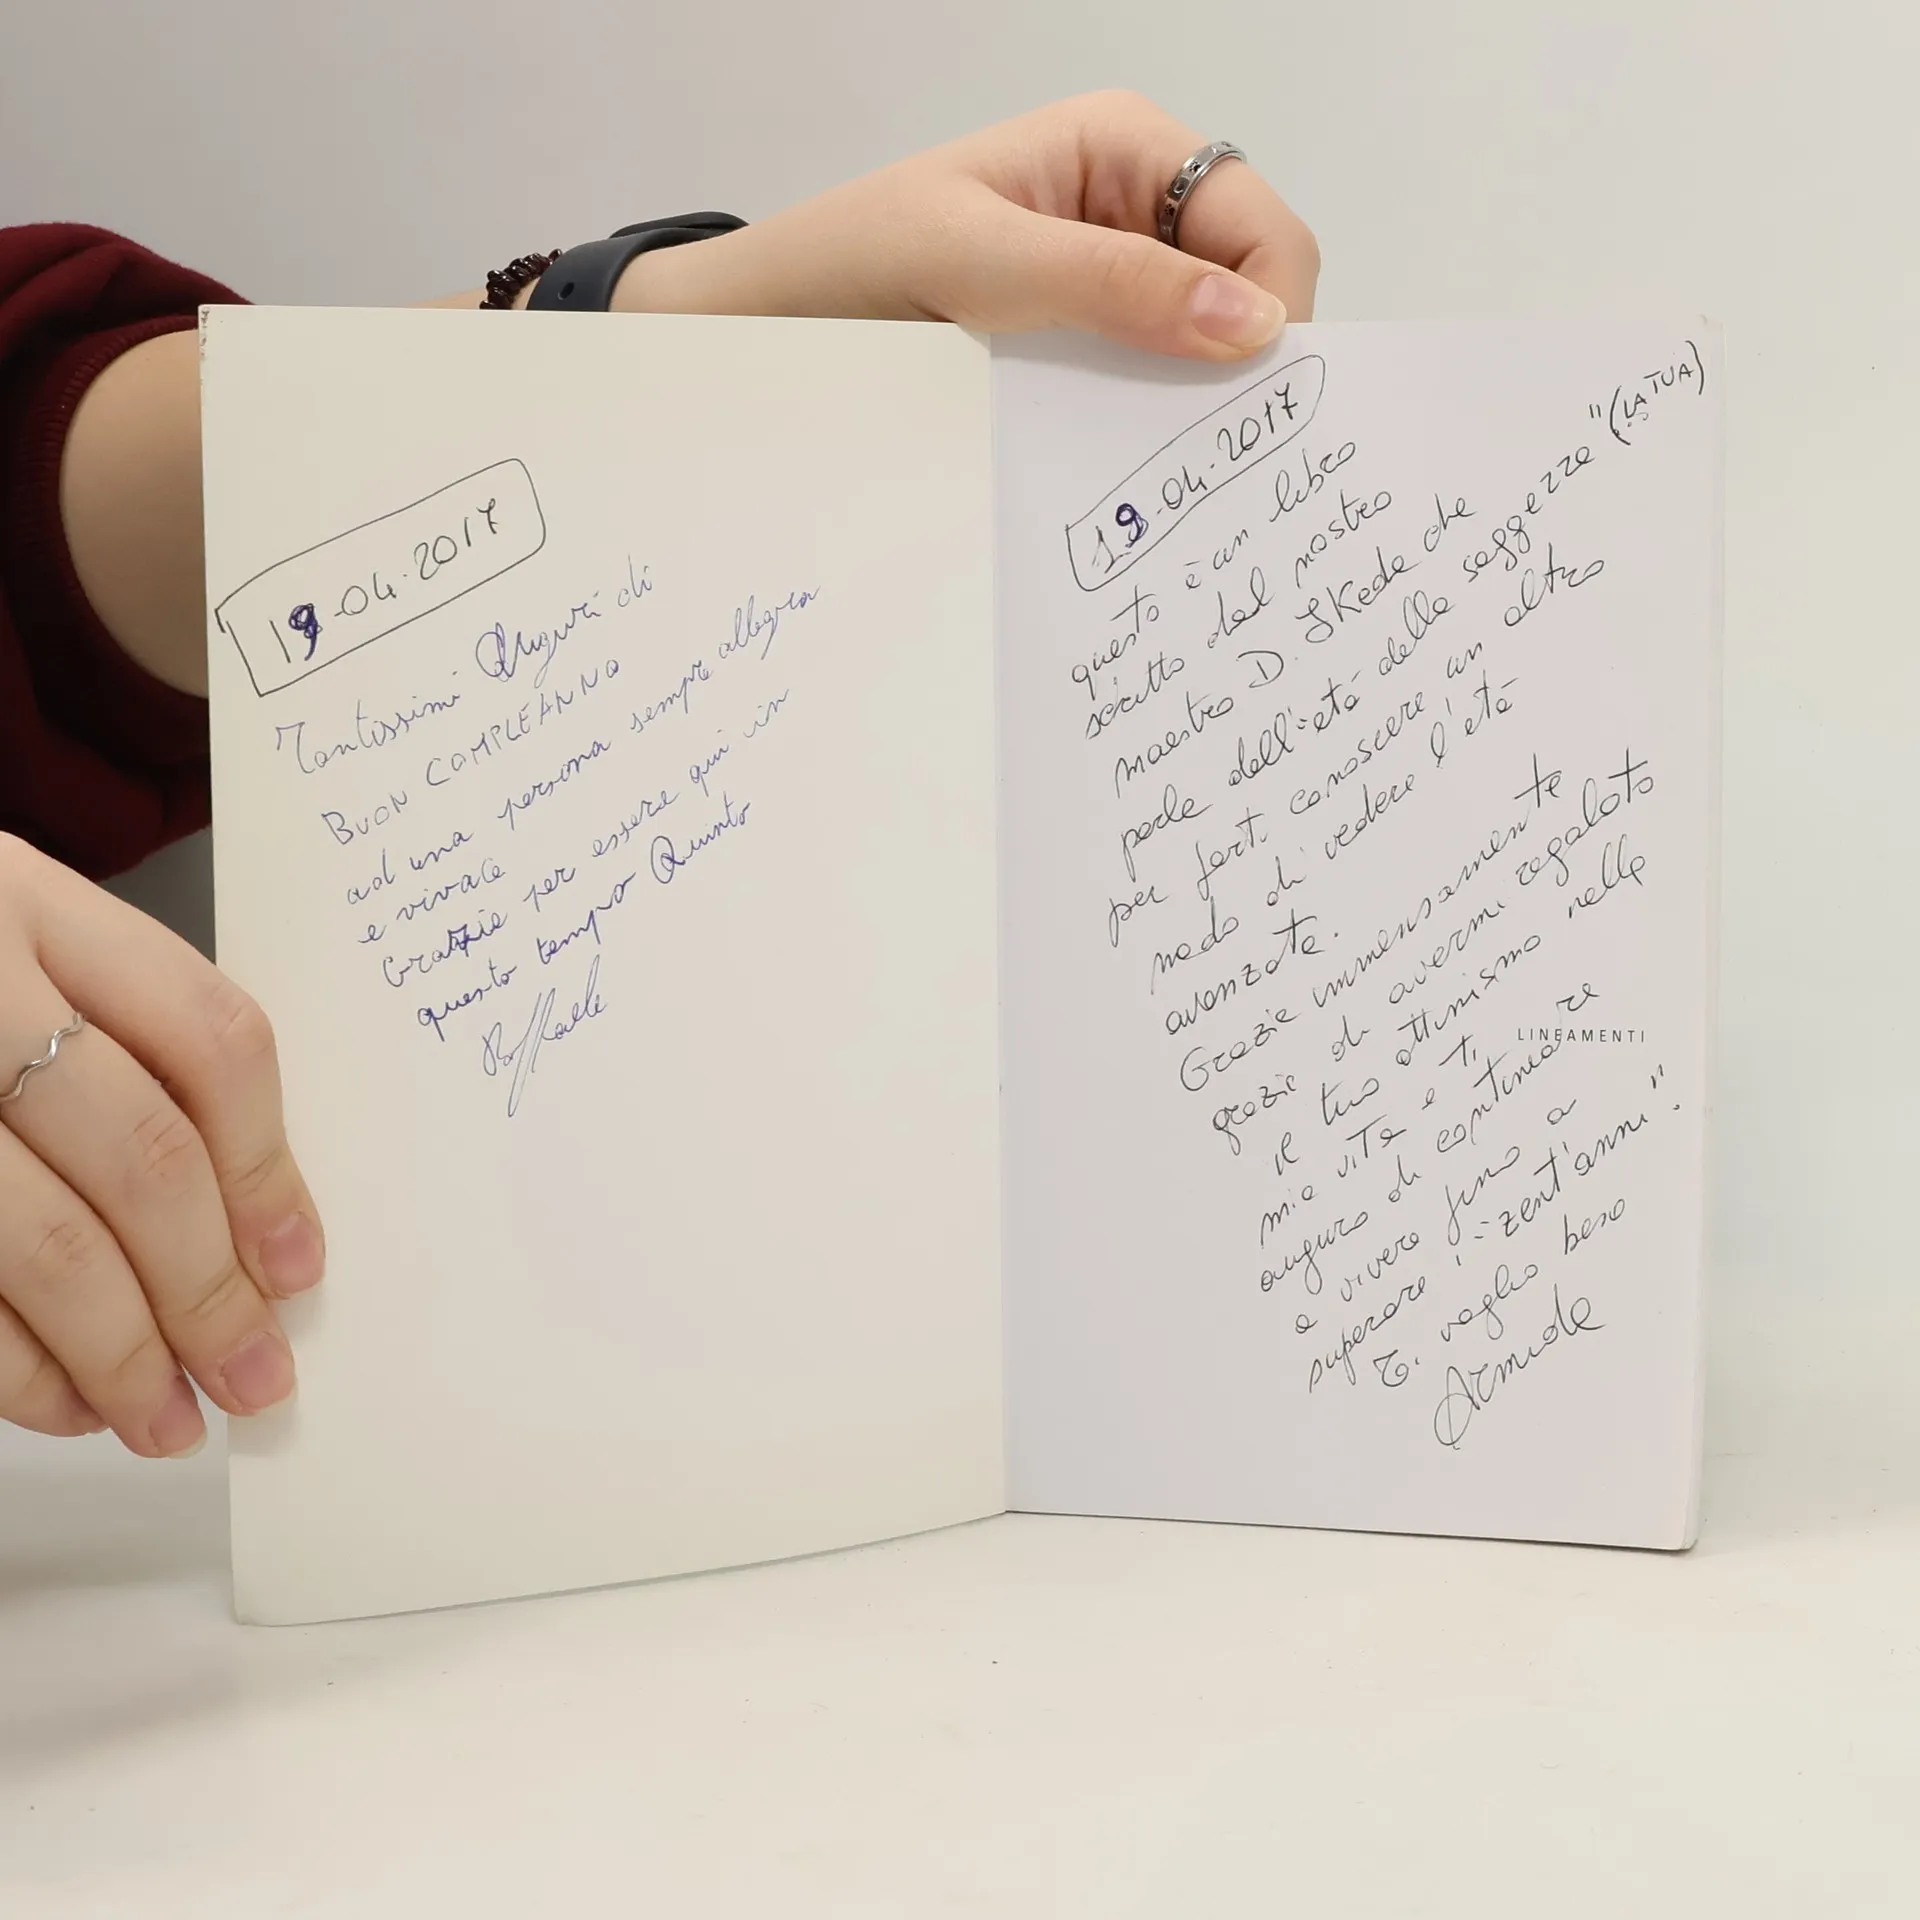 19-04-2017
Tantissimi Auguri di
BUON COMPLEANNO
ad una persona sempre allegra
e vivace
Grazie per essere qui in
questo tempo Quinto
Raffaele
19-04-2017
questo è un libro
scritto dal nostro
maestro D. Ikeda che
parla dell'età della saggezza" (LA TUA)
per farti conoscere un altro
modo di vedere l'età
avanzata.
Grazie immensamente
grazie di avermi regalato
il tuo ottimismo nella
mia vita e ti
auguro di continuare
a vivere fino a
superare i "zent'anni".
Ti voglio bene
Armida
LINEAMENTI